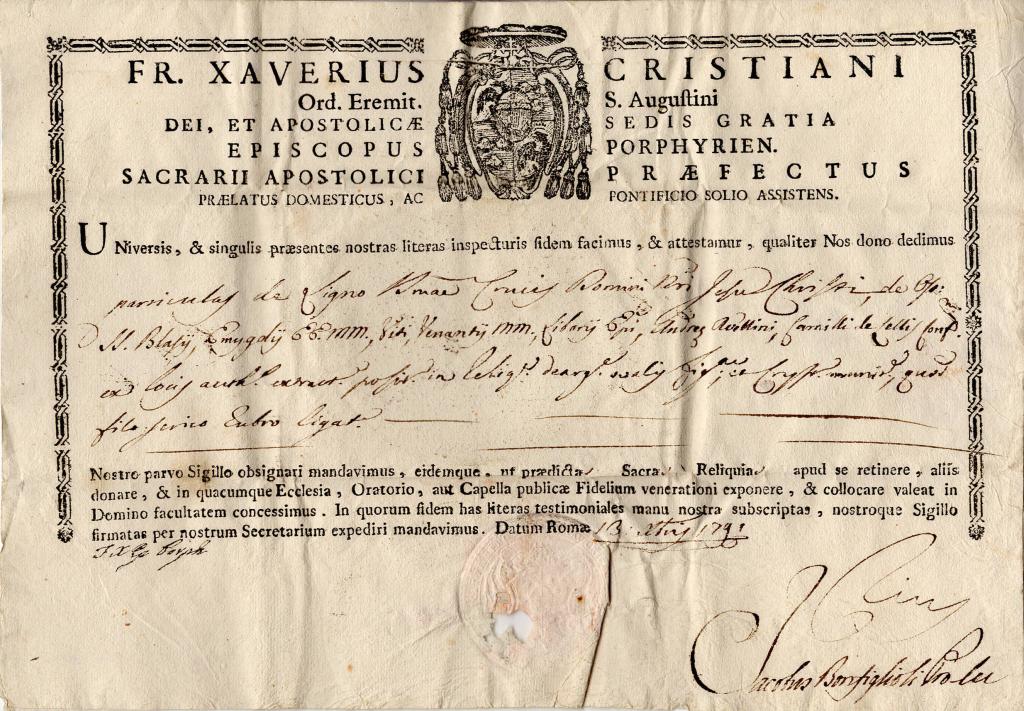 FR. XAVERIUS CRISTIANI
Ord. Eremit. S. Auguſtini
DEI, ET APOSTOLICÆ SEDIS GRATIA
EPISCOPUS PORPHYRIEN.
SACRARII APOSTOLICI PRÆFECTUS
PRÆLATUS DOMESTICUS, AC PONTIFICIO SOLIO ASSISTENS.
UNiversis, & singulis præsentes nostras literas inspecturis fidem facimus, & attestamur, qualiter Nos dono dedimus
particulas de Ligno Smae Crucis Domini Nri Jesu Christi, de Oss:
SS. Blasij, Emygdij EE.MM., Viti, Venantij MM., Liborij Epi, Andreę Avellini, Camilli de Lellis Conf.
ex locis auth. extract. posit. in reliq. de arg. ovalis fig., et Cryst. munit., quod
filo serico rubro ligat.
Nostro parvo Sigillo obsignari mandavimus, eidemque, ut prædictas Sacras Reliquias apud se retinere, aliis
donare, & in quacumque Ecclesia, Oratorio, aut Capella publicæ Fidelium venerationi exponere, & collocare valeat in
Domino facultatem concessimus. In quorum fidem has literas testimoniales manu nostra subscriptas, nostroque Sigillo
firmatas per nostrum Secretarium expediri mandavimus. Datum Romæ 13 Xbris 1791
F. X. Ep. Porph.
Jacobus Bonfiglioli